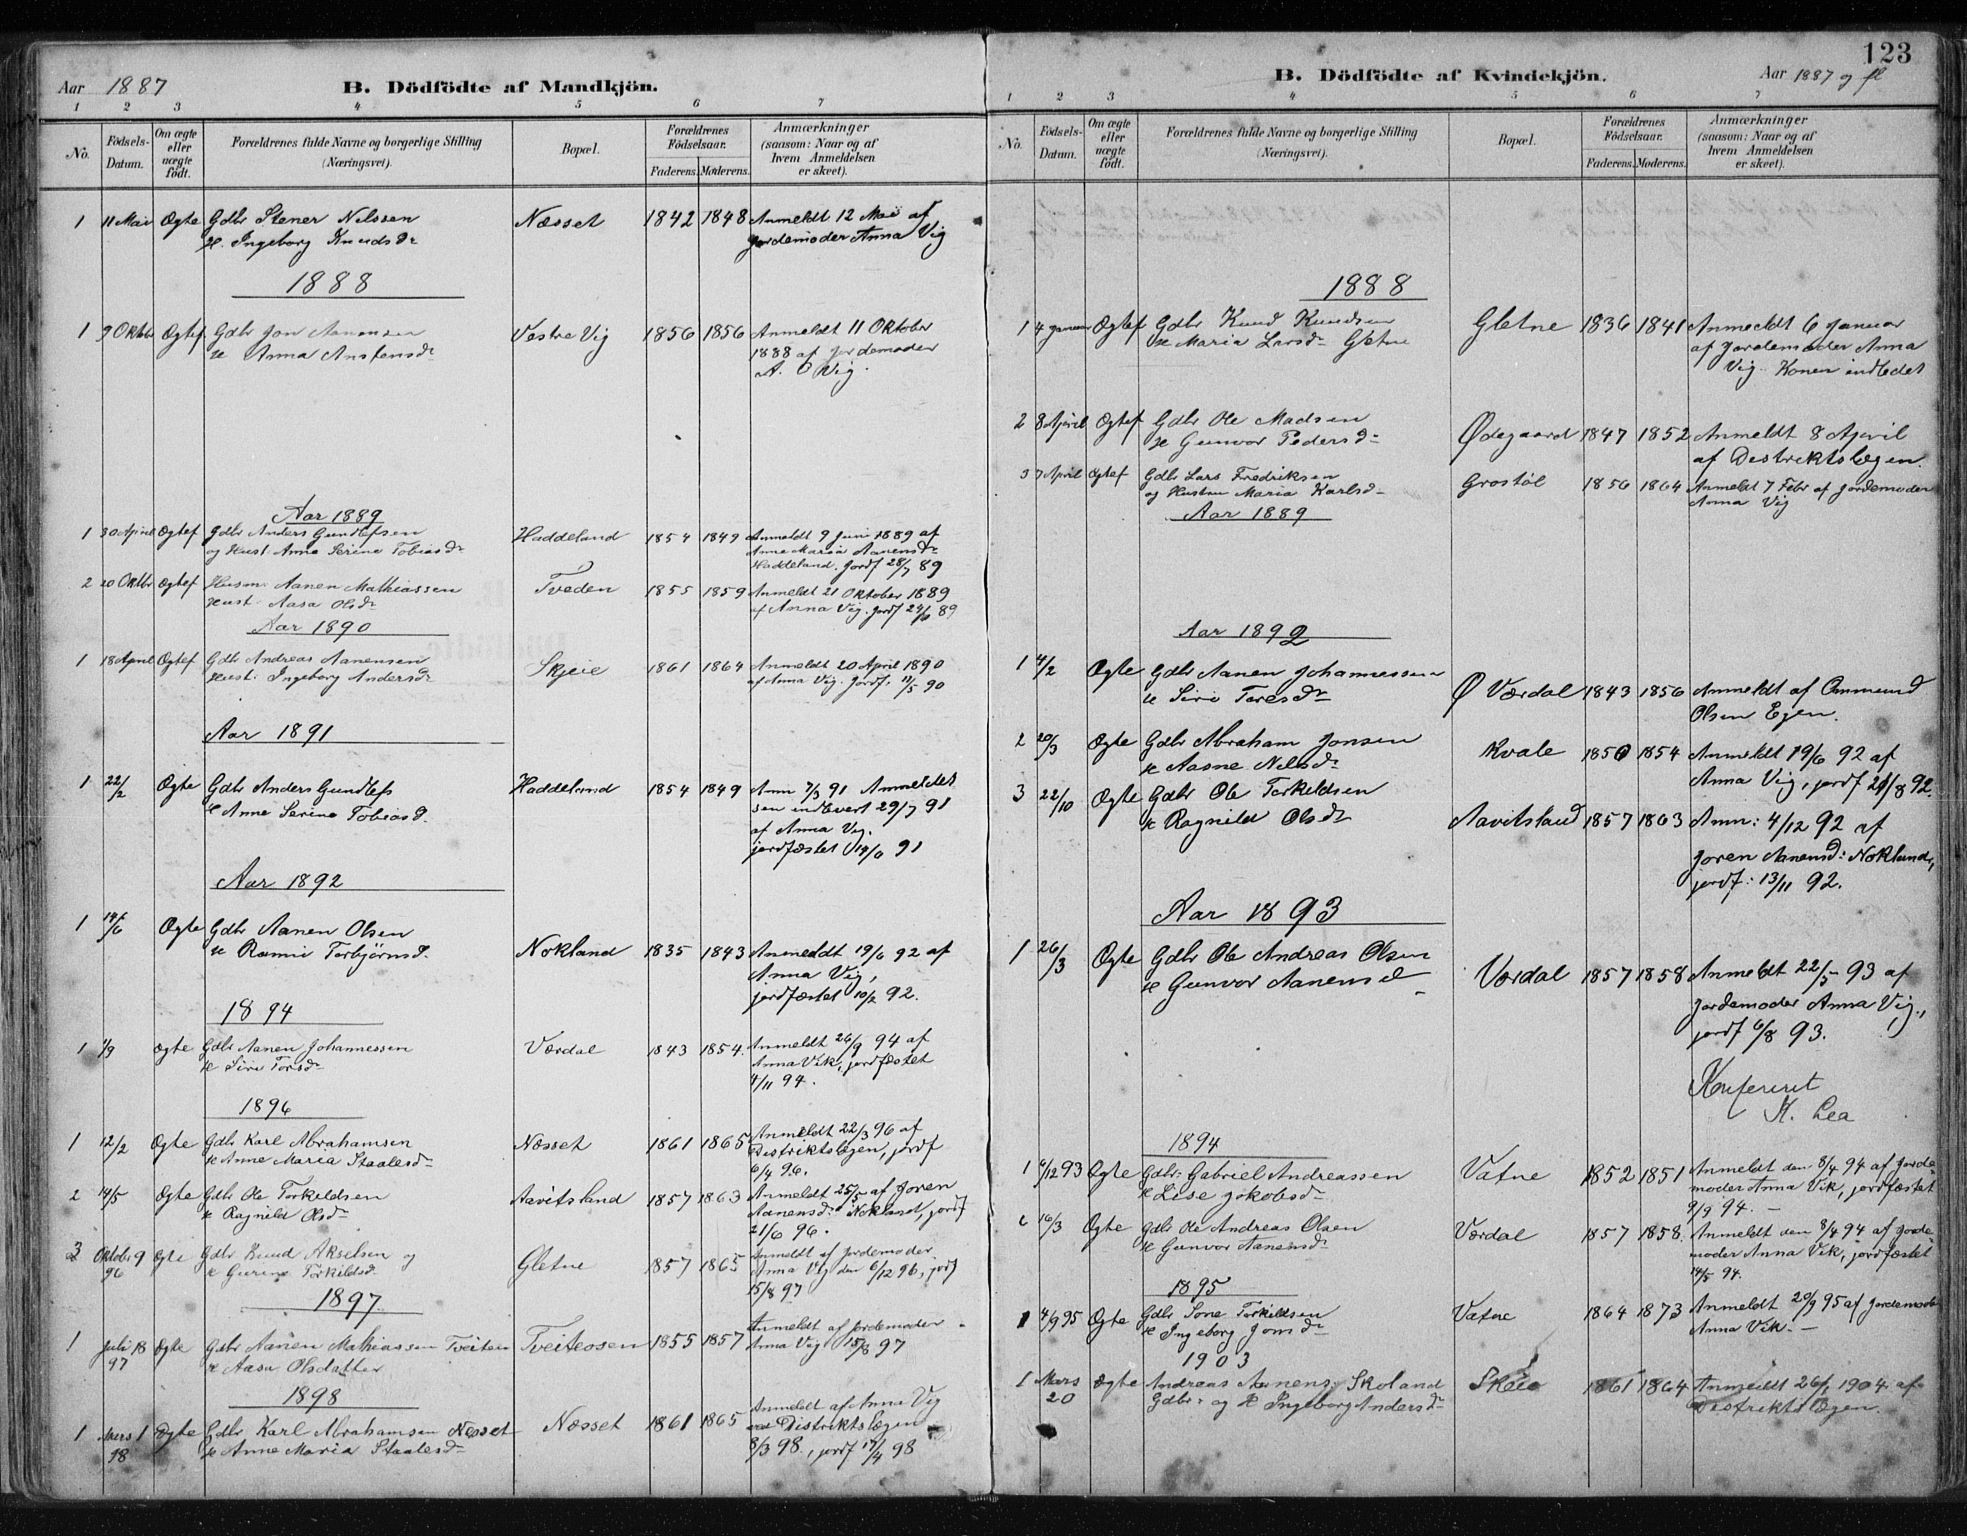 Aar 1887
B. Dödfödte af Mandkjön.
1 2 3 4 5 6 7
No.
Födsels-
Datum.
Om ægte
eller
uægte
födt.
Forældrenes fulde Navne og borgerlige Stilling
(Næringsvei).
Bopæl.
Forældrenes
Födselsaar.
Faderens. Moderens.
Anmærkninger
(saasom: Naar og af
hvem Anmeldelsen
er skeet).
1 11 Mai Ægte Gdbr Stener Nilssen Næsset 1842 1848 Anmeldt 12 Mai af
H. Ingeborg Knudsdr jordemoder Anna Vig
1888
1 9 Oktbr Ægtef Gdbr Jon Aanensen Vestre Vig 1856 1856 Anmeldt 11 Oktober
H Anna Anstensdr 1888 af Jordemoder
A. O Vig.
Aar 1889
1 30 April Ægtef Gdbr Anders Gundlefsen Haddeland 1854 1849 Anmeldt 9 Juni 1889 af
og Hust. Anne Serine Tobiasdr Anne Maria Aanensdr
Haddeland. Jordf 28/7 89
2 20 Oktbr Ægtef Husm. Aanen Mathiassen Tveden 1855 1859 Anmeldt 21 Oktober 1889
Hust. Aasa Olsdr af Anna Vig. Jordf 89
Aar 1890
1 18 April Ægtef Gdbr Andreas Aanensen Skjeie 1861 1864 Anmeldt 20 April 1890
Hust. Ingeborg Andersdr af Anna Vig. Jordf. 11/5 90
Aar 1891
1 22/2 Ægte Gdbr Anders Gundlefs Haddeland 1854 1849 Anm 7/3 91 Anmeldel
H Anne Serine Tobiasd. sen indlevert 29/7 91
af Anna Vig.
jordfæstet 91
Aar 1892
1 14/6 Ægte Gdbr Aanen Olsen
H Torbjørnsd. Nokland 1835 1843 Anmeldt 19/6 92 af
Anna Vig,
jordfæstet 92.
1894
1 1/9 ægte Gdbr Aanen Johannessen Værdal 1843 1854. Anmeldt 26/9 94 af
H Siri Torsdr Anna Vik, jordfæstet
4/11 94.
1896
1 12/2 Ægte Gdbr Karl Abrahamsen Næsset 1861 1865 Anmeldt 22/3 96 af
H Anne Maria Staalesd- Distriktslægen, jordf
6/4 96.
2 14/5 Ægte Gdbr Ole Torkildsen Aavitsland 1857 1863 Anmeldt 25/5 af Joren
H Ragnild Olsd- Aanensd: Nokland, jordf
21/6 96.
3 Oktobr 9 Ægte Gdbr Knud Akselsen og Gletne 1857 1865 Anmeldt af Jordemoder
96 H Gurine Torkildsd. Anna Vig den 6/12 96, jordf
15/8 97
1897
1 Juli 18 Ægte Gdbr Aanen Mathiassen Tveiten Tveitossen 1855 1857 Anmeldt af Jordemoder
97 H Aasa Olsdatter Anna Vig 15/8 97
1898
1 Mars 1 Ægte Gdbr Karl Abrahamsen Nesset Næsset 1861 1865 Anmeldt af Anna Vig
98 H Anne Maria Staalesd- Distriktslægen
8/3 98., jordf 17/4 98
123
B. Dödfödte af Kvindekjön.
Aar 1887 og fl
1 2 3 4 5 6 7
No.
Födsels-
Datum.
Om ægte
eller
uægte
födt.
Forældrenes fulde Navne og borgerlige Stilling
(Næringsvei).
Bopæl.
Forældrenes
Födselsaar.
Faderens. Moderens.
Anmærkninger
(saasom: Naar og af
hvem Anmeldelsen
er skeet).
1888
1 4 Januar Ægtef Gdbr Knud Knudsen Gletne 1836 1841 Anmeldt 6 Januar
H Maria Larsdr Gletne af Jordemoder Anna
Vig. Konen indledet
2 8 April Ægtef Gdbr Ole Madsen Ødegaard 1847 1852 Anmeldt 8 April
H Gunvor Pedersd- af Distriktslægen.
3 7 April Ægtef Gdbr Lars Fredriksen Grostøl 1856 1864 Anmeldt 7 Febr af Jordemoder
og Hustru Maria Karlsd- Anna Vig
Aar 1889
Aar 1892
1 4/2 Ægte Gdbr Aanen Johannessen
H Siri Toresdr Ø Værdal 1843 1856 Anmeldt af Ommund
Olsen Egen.
2 20/3 Ægte Gdbr Abraham Jonsen Kvale 1850 1854 Anmeldt 19/6 92 af
H Aasne Nilsdr Anna Vig, jordf 21/8 92.
3 22/10 Ægte Gdbr Ole Torkildsen
H Ragnild Olsdr Aavitsland 1857 1863 Anm: 4/12 92 af
Joren Aanensd: Nokland,
jordf: 13/11 92.
Aar 1893
1 26/3 Ægte Gdbr Ole Andreas Olsen
H Gunvor Aanensd Værdal 1857 1858 Anmeldt 22/5 93 af
Jordemoder Anna Vig,
jordf 6/8 93.
Konfereret
H. Lea
1894
1 6/12 93 Ægte Gdbr: Gabriel Andreassen Vatne 1852 1851 Anmeldt den 8/4 94 af Jorde
H Lise Jakobsdr moder Anna Vik, jordfæstet
9/9 94. -
16/3 Ægte Gdbr Ole Andreas Olsen Værdal 1857 1858. Anmeldt den 8/4 94 af Jorde
H Gunvor Aanensdr moder Anna Vik, jordfæstet
14/5 94.
1895
1 4/9 95 Ægte Gdbr Sone Torkildsen Vatne 1864 1873 Anmeldt 20/9 95 af Jordemoder
H Ingeborg Jonsdr Anna Vik. -
1903
1 Mars Ægte Andreas Aanens. Skoland Skeie 1861 1864 Anmeldt 1904 af
20 Gdbr. og H Ingeborg Andersdr Distriktslægen.